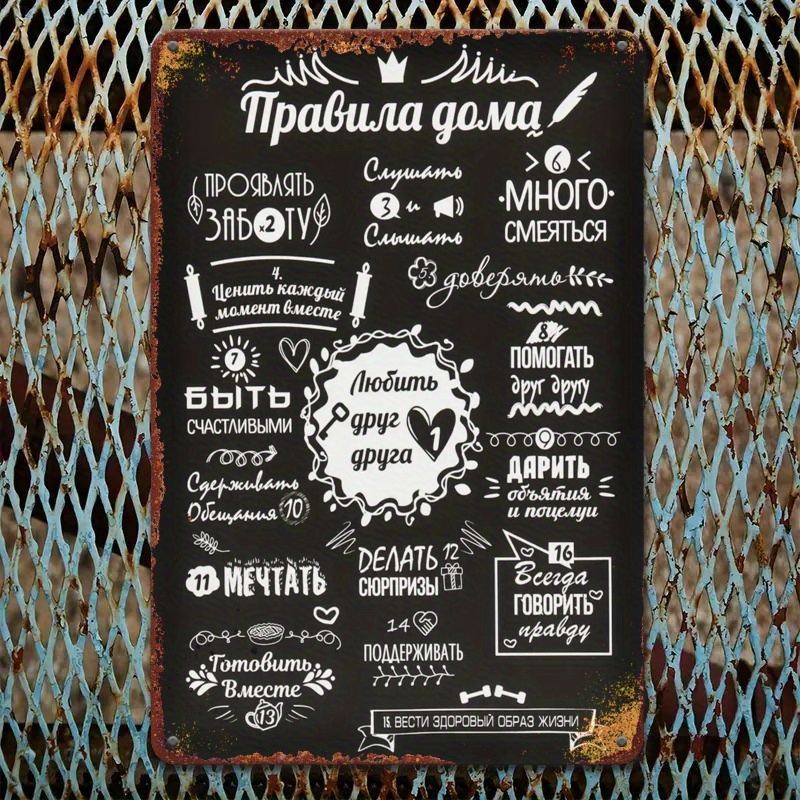 Правила дома
ПРОЯВЛЯТЬ
ЗАБОТУ
x2
Слушать
3 и
Слышать
6
МНОГО
СМЕЯТЬСЯ
4.
Ценить каждый
момент вместе
5 доверять
7
БЫТЬ
СЧАСТЛИВЫМИ
Любить
друг
друга
1
8
ПОМОГАТЬ
друг другу
9
ДАРИТЬ
объятия
и поцелуи
Сдерживать
Обещания 10
11 МЕЧТАТЬ
ДЕЛАТЬ 12
СЮРПРИЗЫ
16
Всегда
ГОВОРИТЬ
правду
14
ПОДДЕРЖИВАТЬ
Готовить
Вместе
13
15. ВЕСТИ ЗДОРОВЫЙ ОБРАЗ ЖИЗНИ